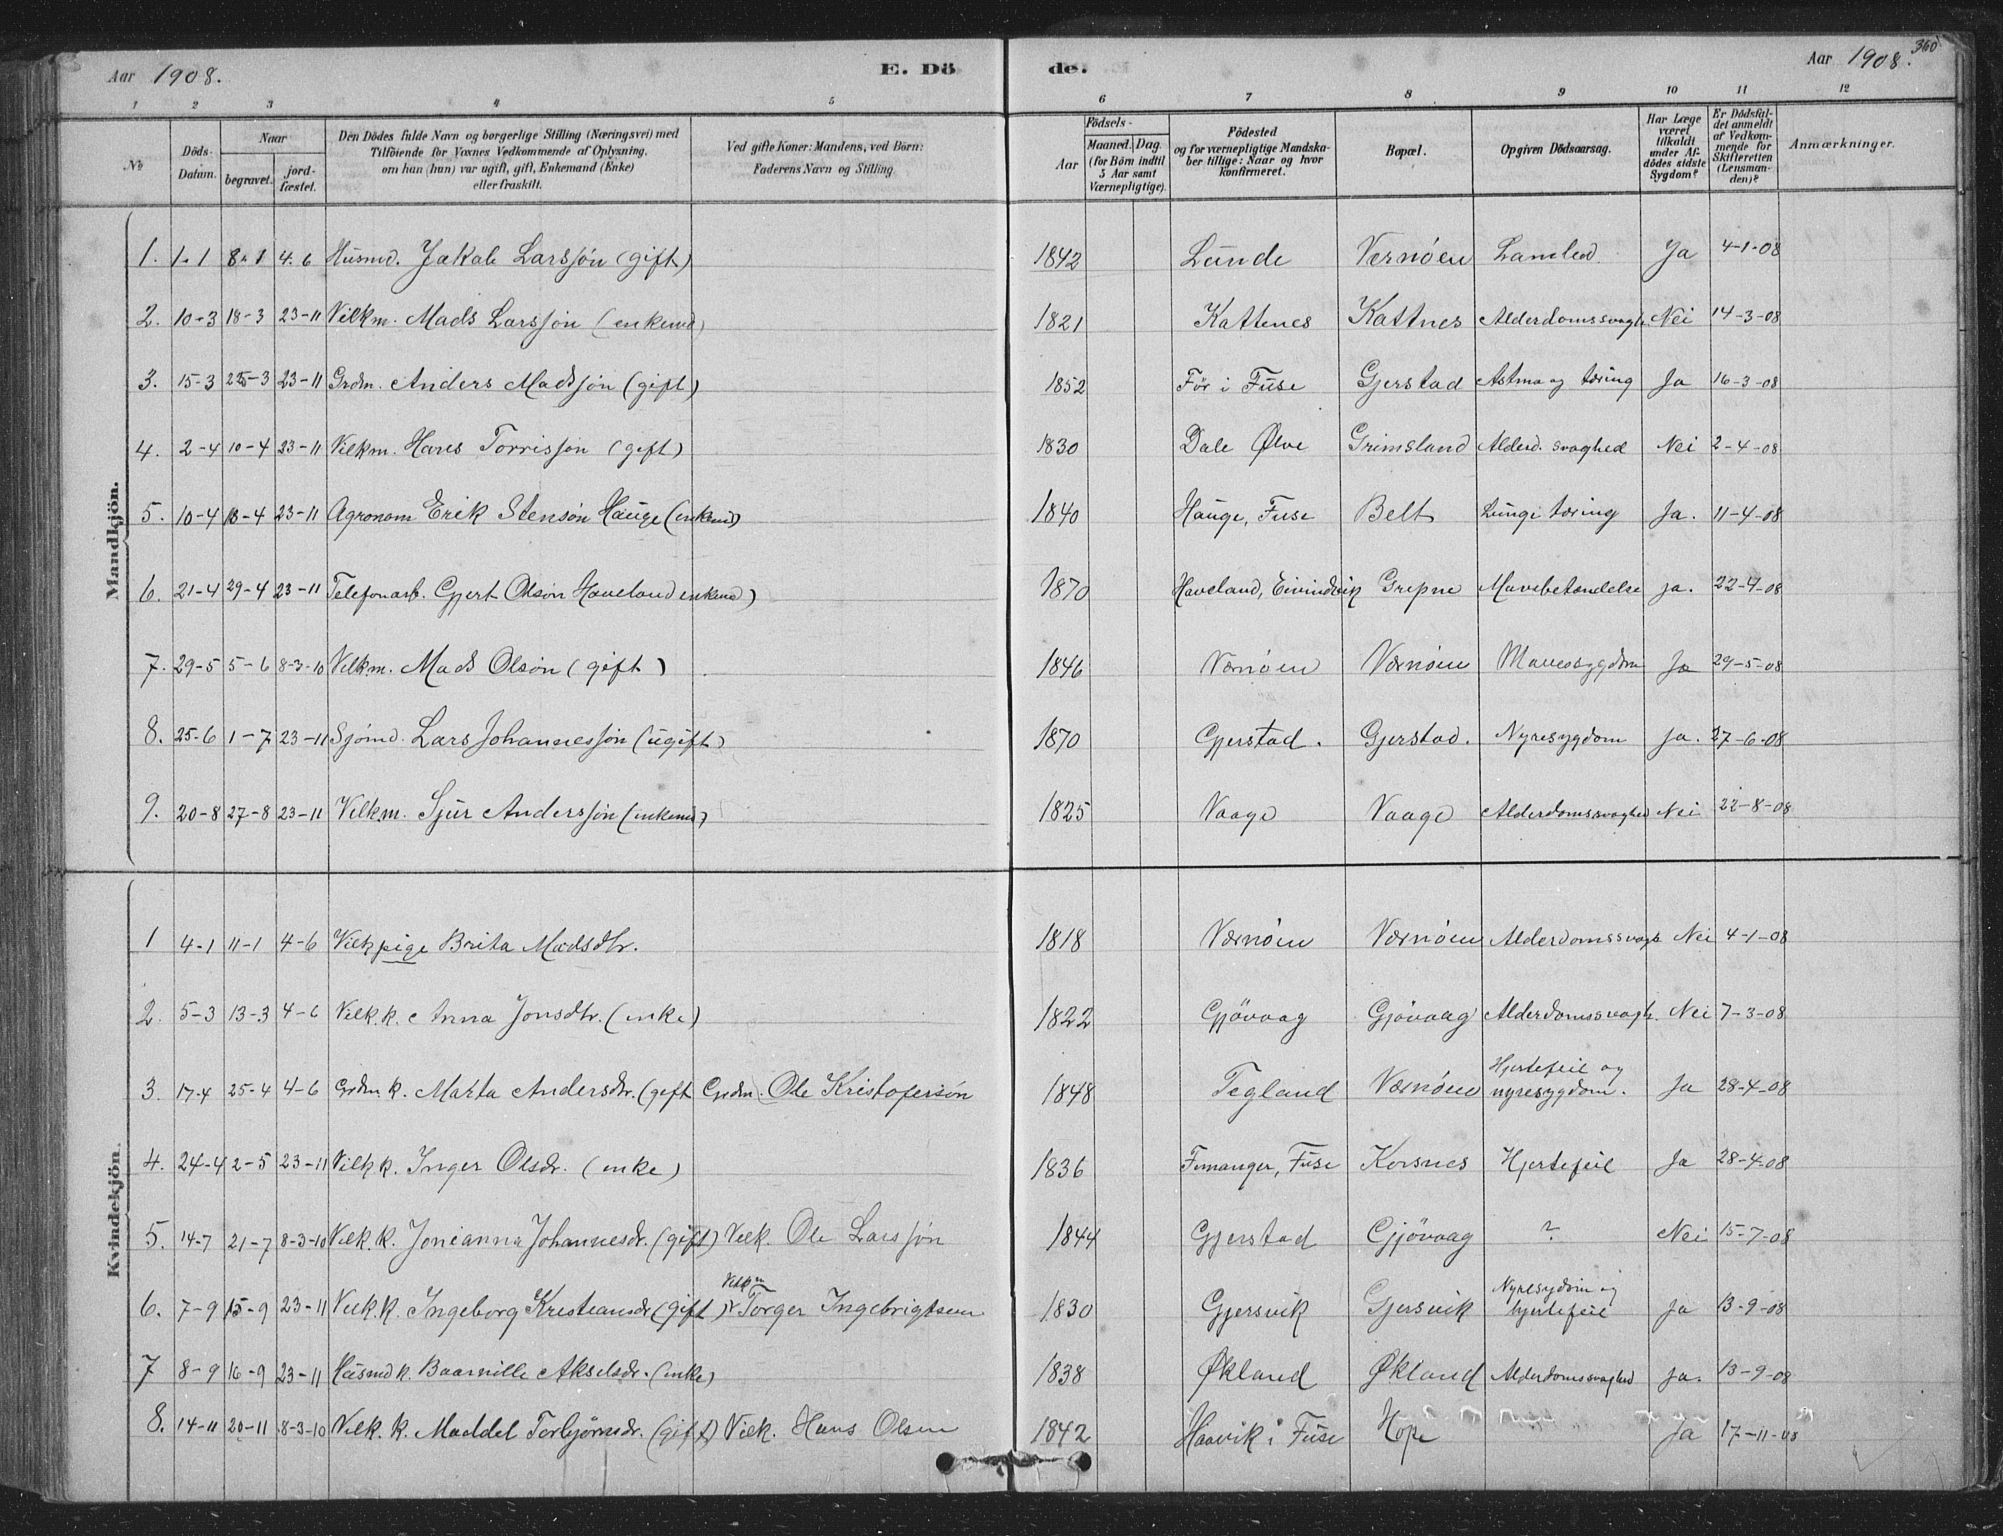 Aar 1908. E. Dö de. Aar 1908. 360
1 2 3 4 5 6 7 8 9 10 11 12
No
Döds-Datum.
Naar
begravet.
jord-fæstet.
Den Dödes fulde Navn og borgerlige Stilling (Næringsvei) med
Tilföiende for Voxnes Vedkommende af Oplysning,
om han (hun) var ugift, gift, Enkemand (Enke)
eller fraskilt.
Ved gifte Koner: Mandens, ved Börn:
Faderens Navn og Stilling.
Födsels-
Aar
Maaned. Dag.
(for Börn indtil
5 Aar samt
Værnepligtige).
Födested
og for værnepligtige Mandska-
ber tillige: Naar og hvor
konfirmeret.
Bopæl.
Opgiven Dödsaarsag.
Har Læge
været
tilkaldt
under Af-
dödes sidste
Sygdom?
Er Dödsfal-
det anmeldt
af Vedkom-
mende for
Skifteretten
(Lensman-
den)?
Anmærkninger.
Mandkjön.
1. 1-1 8-1 4-6 Husmd. Jakob Larssøn (gift) 1842 Lunde Vernøen Ja 4-1-08
2. 10-3 18-3 23-11 Vilkm. Mads Larssøn (enkemd) 1821 Kattenes Kattnes Alderdomssvagh. Nei 14-3-08
3. 15-3 25-3 23-11 Grdm. Anders Madssøn (gift) 1852 Før i Fuse Gjerstad Astma og tæring Ja 16-3-08
4. 2-4 10-4 23-11 Vilkm. Hans Torrissøn (gift) 1830 Dale Ølve Grimsland Alderd. svaghed Nei 2-4-08
5. 10-4 18-4 23-11 Agronom Erik Stensøn Hauge (enkemd) 1840 Hauge, Fuse Belt Lungetæring Ja. 11-4-08
6. 21-4 29-4 23-11 Telefonarb. Gjert Olsøn Haveland enkemd) 1870 Haveland, Eivindvik Grepne Mavebetændelse ja. 22-4-08
7. 29-5 5-6 8-3-10 Vilkm. Mads Olsøn (gift) 1846 Værnøen Værnøen Mavesygdom Ja 29-5-08
8. 25-6 1-7 23-11 Sjømd. Lars Johannessøn (ugift) 1870 Gjerstad. Gjerstad. Nyresygdom ja. 27-6-08
9. 20-8 27-8 23-11 Vilkm. Sjur Anderssøn (enkemd) 1825 Vaage Vaage Alderdomssvaghed Nei 22-8-08
Kvindekjön.
1 4-1 11-1 4-6 Vilkpige Brita Madsdtr. 1818 Værnøen Værnøen Alderdomssvagh. Nei 4-1-08
2. 5-3 13-3 4-6 Vilk.k. Anna Jonsdtr. (enke) 1822 Gjøvaag Gjøvaag Alderdomssvagh. Nei 7-3-08
3. 17-4 25-4 4-6 Grdm k. Marta Andersdr. (gift Grdm. Ole Kristofersøn 1848 Tegland Værnøen Hjertefeil og nyresygdom. Ja 28-4-08
4. 24-4 2-5 23-11 Vilk k. Inger Olsdr. (enke) 1836 Femanger, Fuse Korsnes Hjertefeil Ja 28-4-08
5. 14-7 21-7 8-3-10 Vilk. k. Joneanna Johannesdr. (gift) Vilk. Ole Larssøn 1844 Gjerstad Gjøvaag ? Nei 15-7-08
6. 7-9 15-9 23-11 Vilk.k. Ingeborg Kristiansdr (gift) Vilkm Torger Ingebrigtsen 1830 Gjersvik Gjersvik Nyresydom og hjertefeil Ja 13-9-08
7 8-9 16-9 23-11 Husmd k. Baarnille Akselsdr. (enke) 1838 Økland Økland Alderdomssvaghed Ja. 13-9-08
8. 14-11 20-11 8-3-10 Vilk. k. Maddel Torbjørnsdr. (gift) Vilk. Hans Olsen 1842 Haavik i Fuse Hope Ja 17-11-08